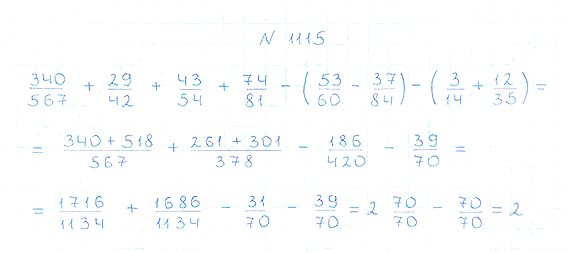 N 1115
340/567 + 29/42 + 43/54 + 74/81 - (53/60 - 37/84) - (3/14 + 12/35) =
= (340 + 518)/567 + (261 + 301)/378 - 186/420 - 39/70 =
= 1716/1134 + 1686/1134 - 31/70 - 39/70 = 2 70/70 - 70/70 = 2